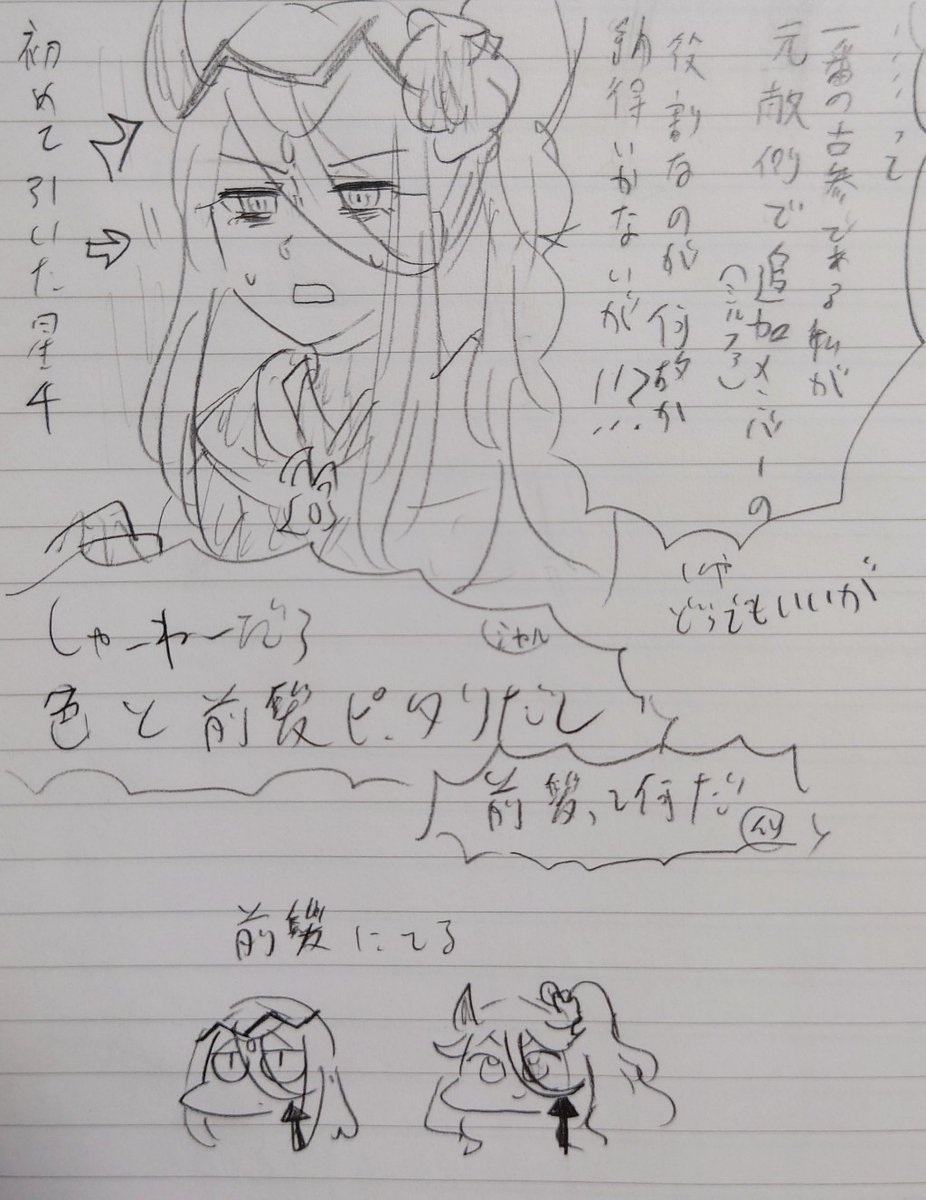 って
一番の古参である私が
元敵側で追加メンバーの
(ミルフィ)
役割なのが何故か
納得いかないが!?…
初めて引いた星4
いや
どうでもいいが
しゃーねーだろ
ジャル
色と前髪ピッタリだし
前髪って何だ
前髪にてる